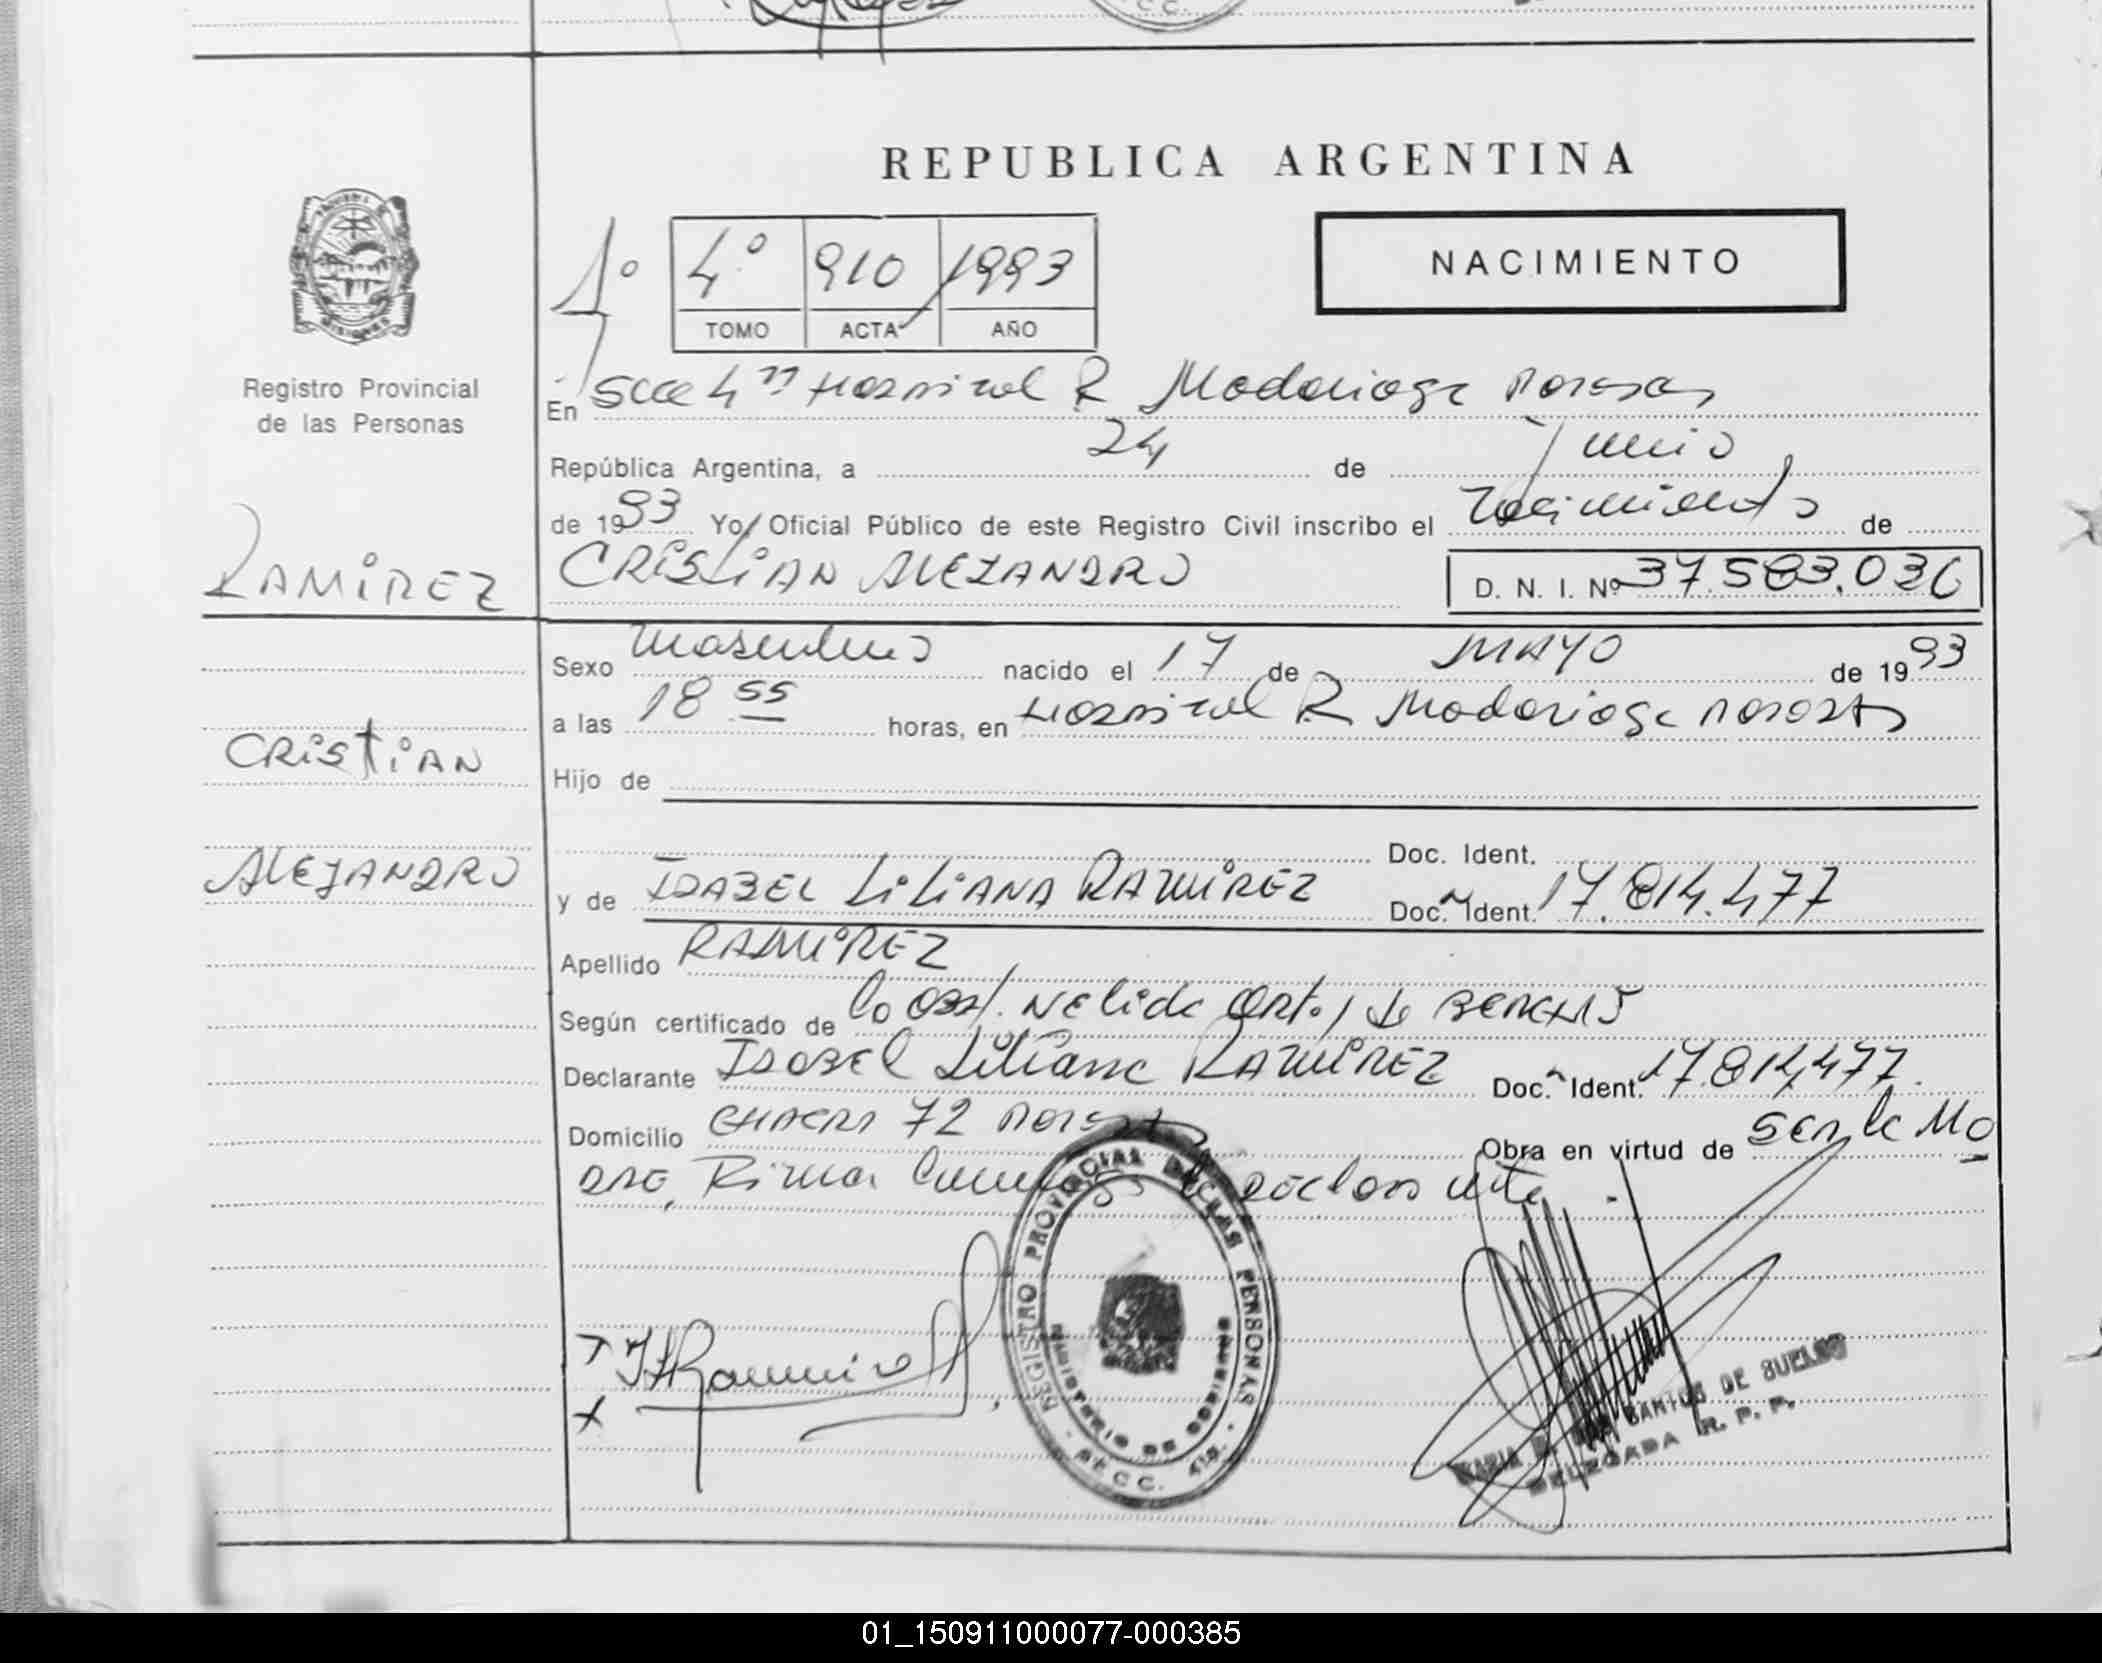 REPUBLICA ARGENTINA
NACIMIENTO
1º
4º 910 1993
TOMO ACTA AÑO
Registro Provincial
de las Personas
En Secc 4ª Hospital R Madariaga Posadas
República Argentina, a 24 de Junio
de 1993 Yo, Oficial Público de este Registro Civil inscribo el Nacimiento de
RAMIREZ
CRISTIAN ALEJANDRO D. N. I. Nº 37.583.036
Sexo Masculino nacido el 17 de MAYO de 1993
a las 18 55 horas, en Hospital R Madariaga Posadas
CRISTIAN
Hijo de
Doc. Ident.
ALEJANDRO
y de ISABEL LILIANA RAMIREZ Doc. Ident. 17.814.477
Apellido RAMIREZ
Según certificado de la Obst. Nelida
Declarante Isabel Liliana RAMIREZ Doc. Ident. 17.814.477.
Domicilio CHACRA 72 Posadas Obra en virtud de ser la Ma
dre, Firma la declarante.
REGISTRO PROVINCIAL DE LAS PERSONAS
MINISTERIO DE GOBIERNO
SECC. 4ta.
SANTOS DE SUELDO
DELEGADA R. P. P.
01_150911000077-000385